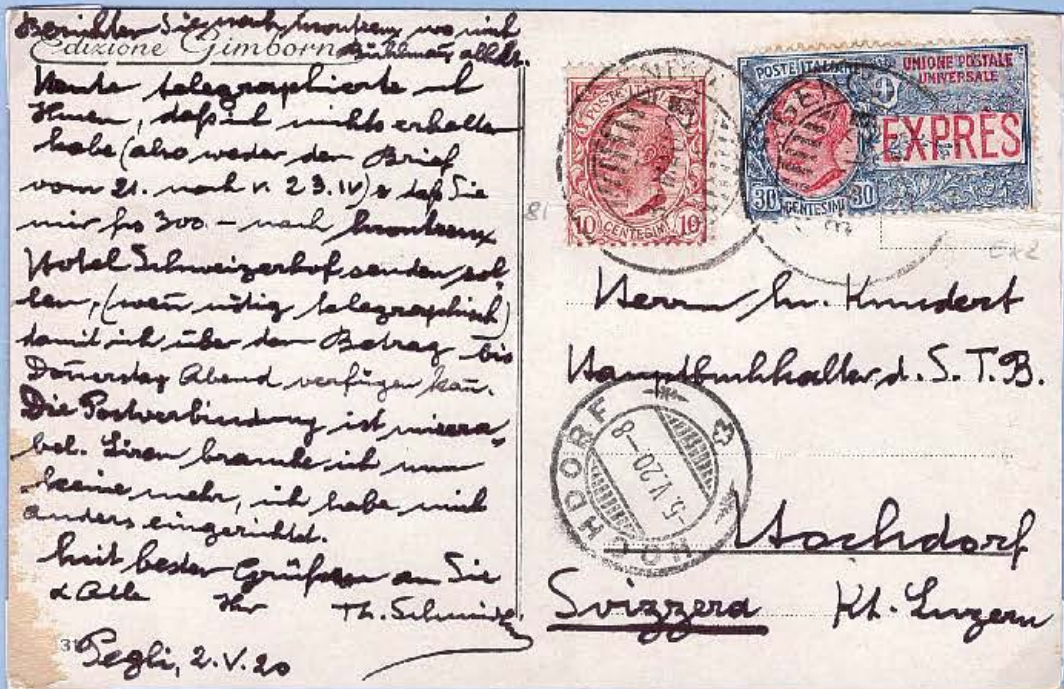 Berichten Sie nach Montreux wo mich
Bühlmann
Edizione Gimborn
Heute telegraphierte ich
Ihnen, daß ich nichts erhalten
habe (also weder den Brief
vom 21. noch v. 23.IV) & daß Sie
mir frs 300.– nach Montreux
Hotel Schweizerhof senden sol-
len, (wen̄ nötig telegraphisch)
damit ich über den Betrag bis
Don̄erstag Abend verfügen kan̄.
Die Postverbindung ist misera-
bel. Liren brauche ich nun
keine mehr, ich habe mich
anders eingerichtet.
Mit besten Grüßen an Sie
& Alle Ihr Th. Schmid
Pegli, 2.V.20
POSTE ITALIANE
10 CENTESIMI 10
POSTE ITALIANE
UNIONE POSTALE
UNIVERSALE
EXPRÈS
30 CENTESIMI 30
81
Herrn Kundert
Hauptbuchhalter d. S.T.B.
HOCHDORF
-5.V.20-8
Hochdorf
Svizzera Kt. Luzern